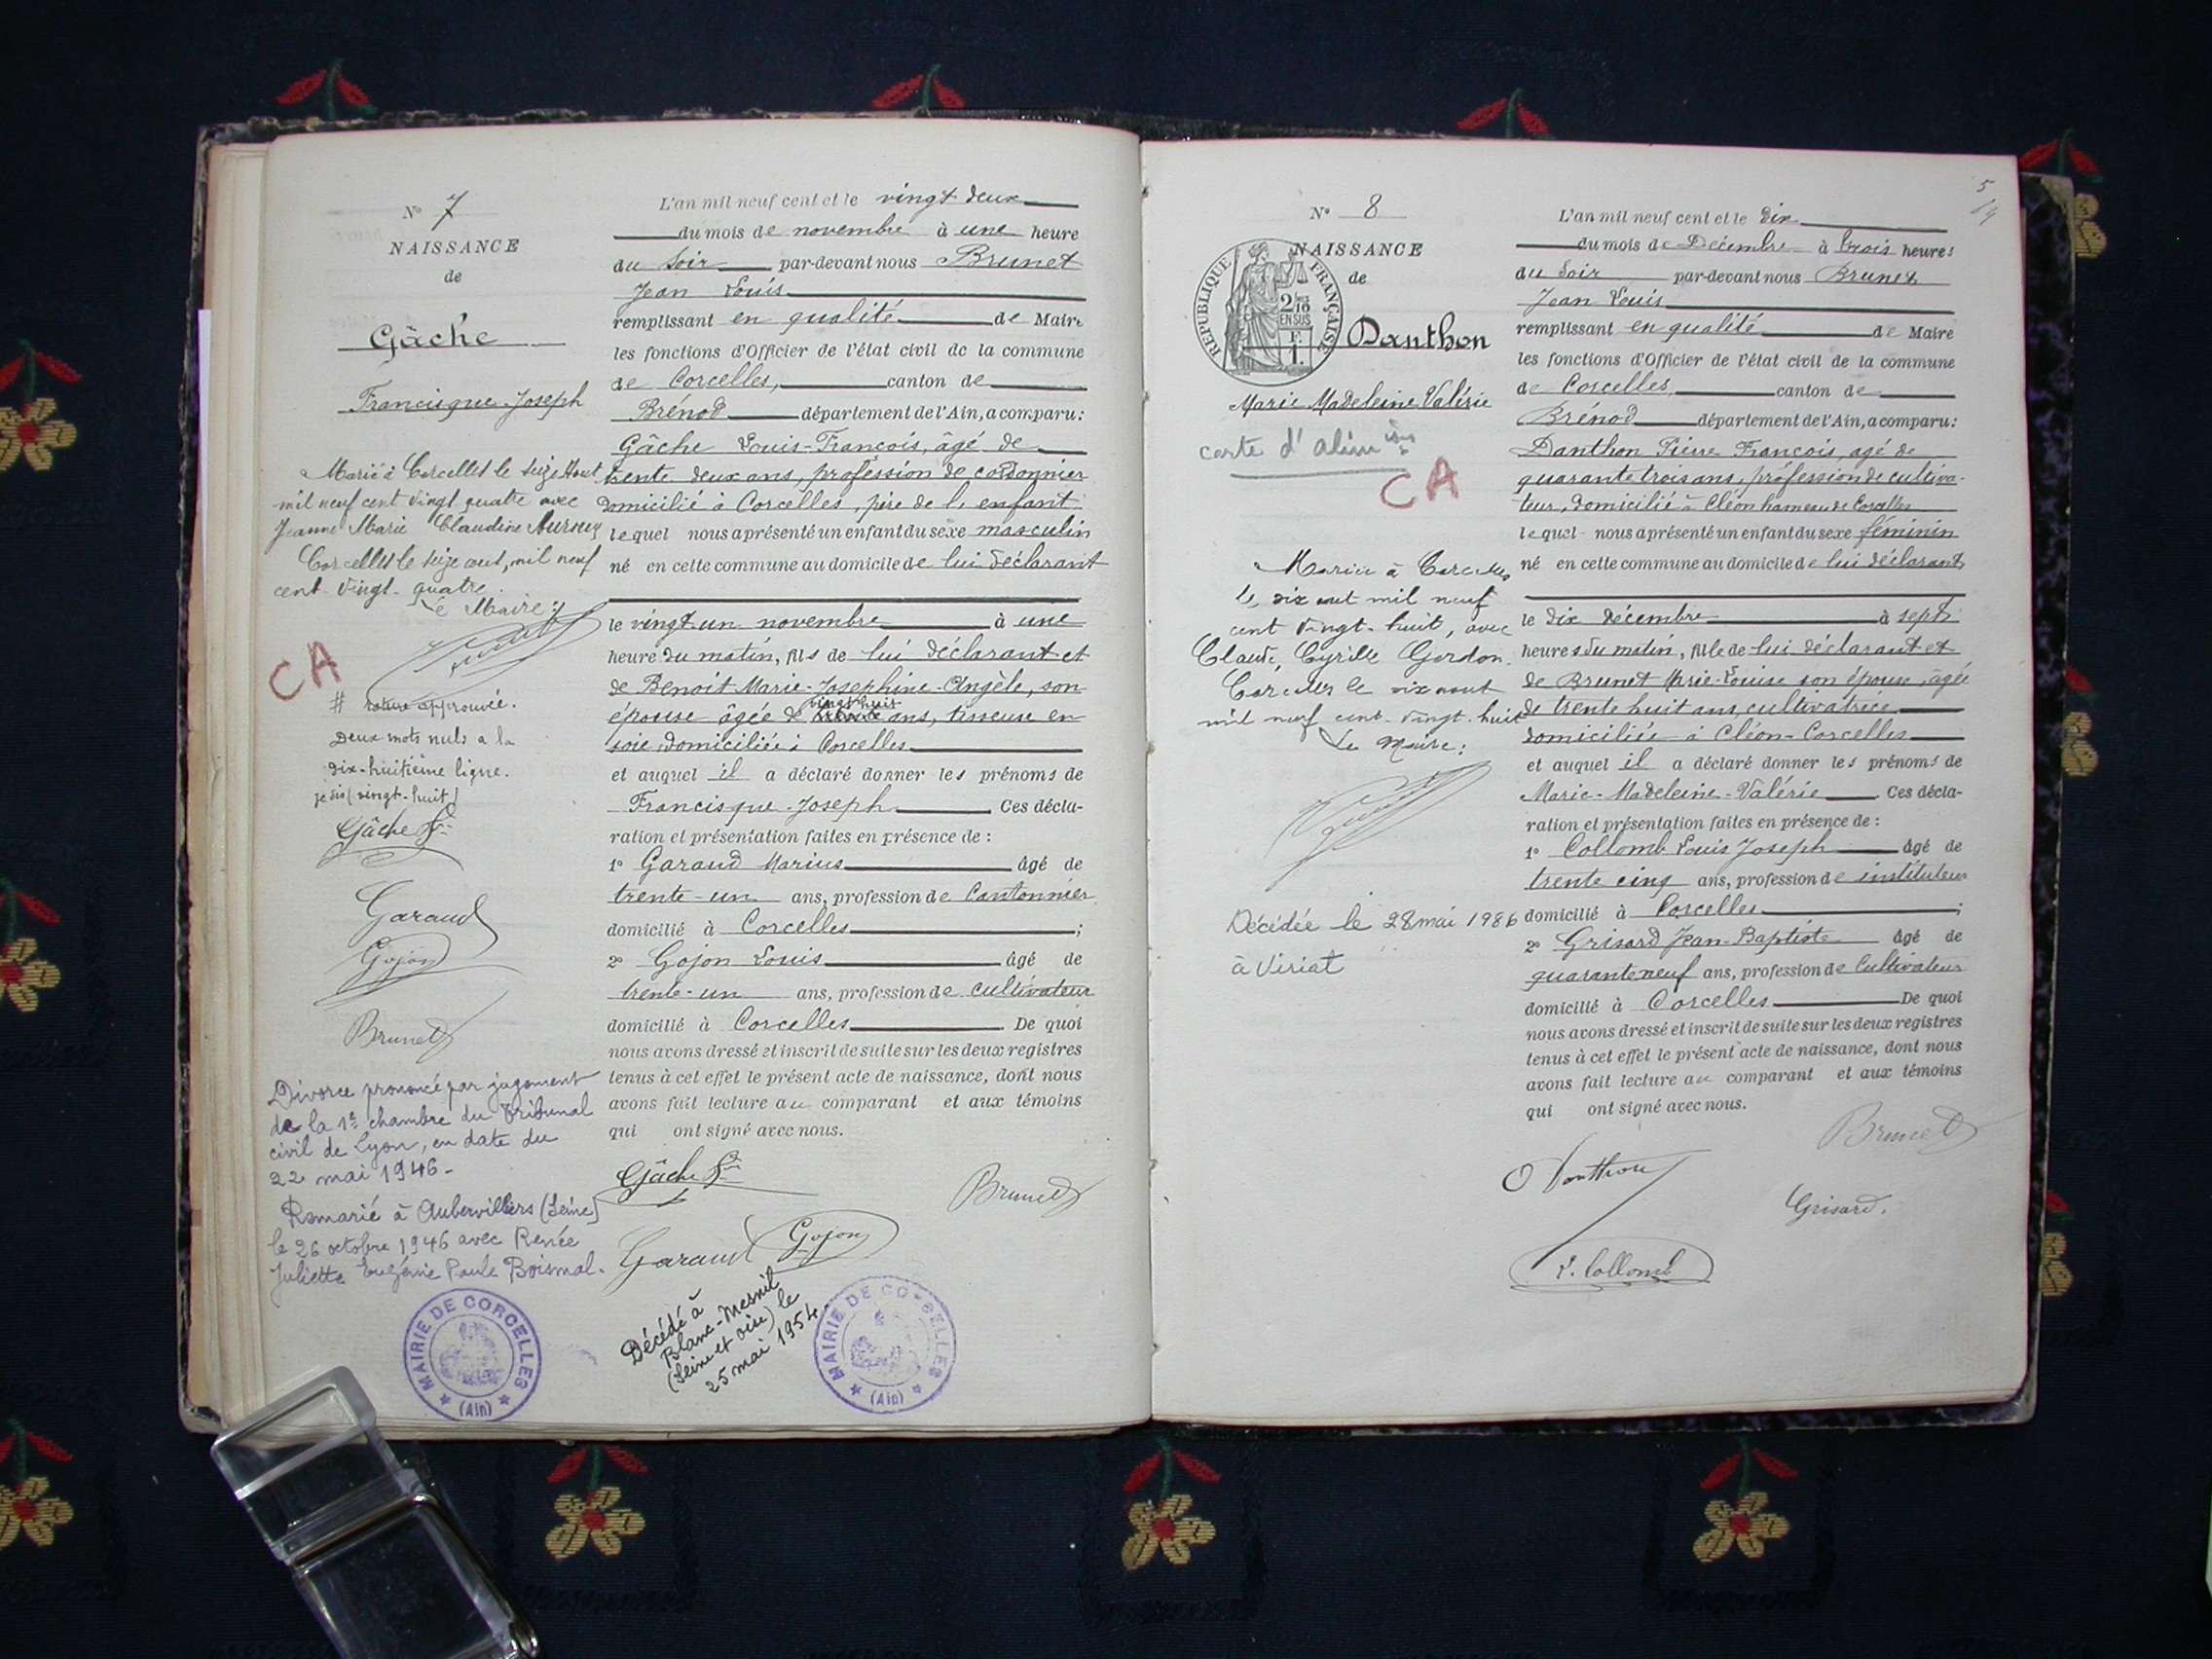 N° 7
NAISSANCE
de
Gâche
Francisque-Joseph
Marié à Corcelles le seize Aout
mil neuf cent vingt quatre avec
Jeanne Marie Claudine
Corcelles le seize aout, mil neuf
cent vingt-quatre
Le Maire:
CA
# rature approuvée.
Deux mots nuls a la
dix-huitième ligne.
(vingt-huit)
Gâche
Garaud
Gojon
Brunet
Divorce prononcé par jugement
de la 1re chambre du Tribunal
civil de Lyon, en date du
22 mai 1946-
Remarié à Aubervilliers (Seine)
le 26 octobre 1946 avec Renée
Juliette Eugénie Paule Boismal.
MAIRIE DE CORCELLES
(Ain)
L'an mil neuf cent et le vingt-deux
du mois de novembre à une heure
du soir par-devant nous Brunet
Jean Louis
remplissant en qualité de Maire
les fonctions d'Officier de l'état civil de la commune
de Corcelles, canton de
Brénod département de l'Ain, a comparu:
Gâche Louis-François, âgé de
trente deux ans, profession de cordonnier
domicilié à Corcelles, père de l'enfant
lequel nous a présenté un enfant du sexe masculin
né en cette commune au domicile de lui déclarant
le vingt-un novembre à une
heure du matin, fils de lui déclarant et
de Benoit Marie-Josephine-Angèle, son
vingt huit
épouse âgée de ans, tisseuse en
soie domiciliée à Corcelles
et auquel il a déclaré donner les prénoms de
Francisque-Joseph Ces décla-
ration et présentation faites en présence de :
1° Garaud Marius âgé de
trente-un ans, profession de Cantonnier
domicilié à Corcelles ;
2° Gojon Louis âgé de
trente-un ans, profession de cultivateur
domicilié à Corcelles De quoi
nous avons dressé et inscrit de suite sur les deux registres
tenus à cet effet le présent acte de naissance, dont nous
avons fait lecture au comparant et aux témoins
qui ont signé avec nous.
Gâche
Brunet
Garaud Gojon
Décédé à
Blanc-Mesnil
(Seine et Oise) le
25 mai 1954
MAIRIE DE CORCELLES
(Ain)
5
N° 8
NAISSANCE
de
REPUBLIQUE FRANÇAISE
2/10
EN SUS
F.
1.
Danthon
Marie Madeleine Valérie
carte d'alim
CA
Mariée à Corcelles
le dix aout mil neuf
cent vingt-huit, avec
Claude, Cyrille Gordon.
Corcelles le dix aout
mil neuf cent-vingt-huit
Le Maire:
Décédée le 28 mai 1986
à Viriat
L'an mil neuf cent et le dix
du mois de Décembre à trois heures
du soir par-devant nous Brunet
Jean Louis
remplissant en qualité de Maire
les fonctions d'Officier de l'état civil de la commune
de Corcelles, canton de
Brénod département de l'Ain, a comparu:
Danthon Pierre François, agé de
quarante trois ans, profession de cultiva-
teur, domicilié à Cléon hameau de Corcelles
lequel nous a présenté un enfant du sexe féminin
né en cette commune au domicile de lui déclarant
le dix décembre à sept
heures du matin, fille de lui déclarant et
de Brunet Marie-Louise son épouse, âgée
de trente huit ans, cultivatrice
domiciliée à Cléon-Corcelles
et auquel il a déclaré donner les prénoms de
Marie-Madeleine-Valérie Ces décla-
ration et présentation faites en présence de :
1° Collomb Louis Joseph âgé de
trente cinq ans, profession de instituteur
domicilié à Corcelles ;
2° Grisard Jean-Baptiste âgé de
quarante neuf ans, profession de Cultivateur
domicilié à Corcelles De quoi
nous avons dressé et inscrit de suite sur les deux registres
tenus à cet effet le présent acte de naissance, dont nous
avons fait lecture au comparant et aux témoins
qui ont signé avec nous.
Brunet
Danthon
Grisard.
L. Collomb